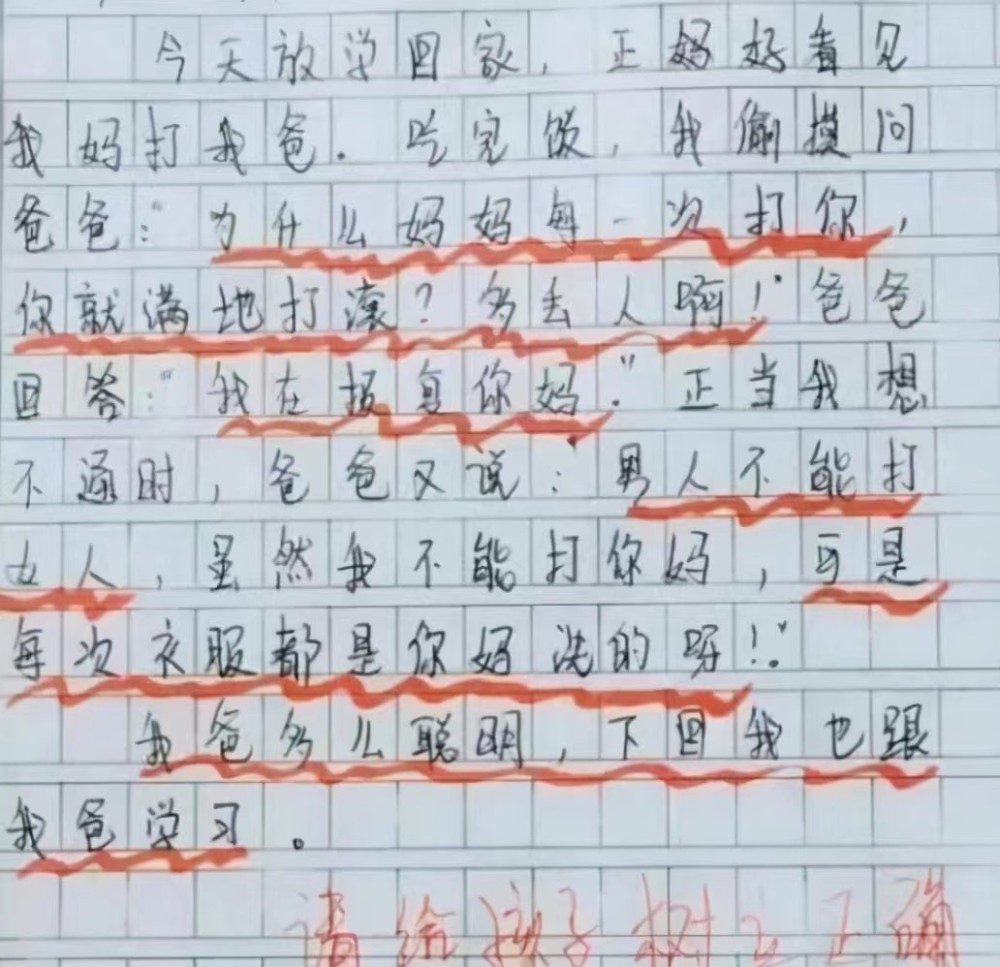 今天放学回家,正妈好看见
我妈打我爸.吃完饭,我偷摸问
爸爸:"为什么妈妈每一次打你,
你就满地打滚?多丢人啊!"爸爸
回答:"我在报复你妈."正当我想
不通时,爸爸又说:"男人不能打
女人,虽然我不能打你妈,可是
每次衣服都是你妈洗的呀!."
我爸多么聪明,下回我也跟
我爸学习。
请给孩子树立正确